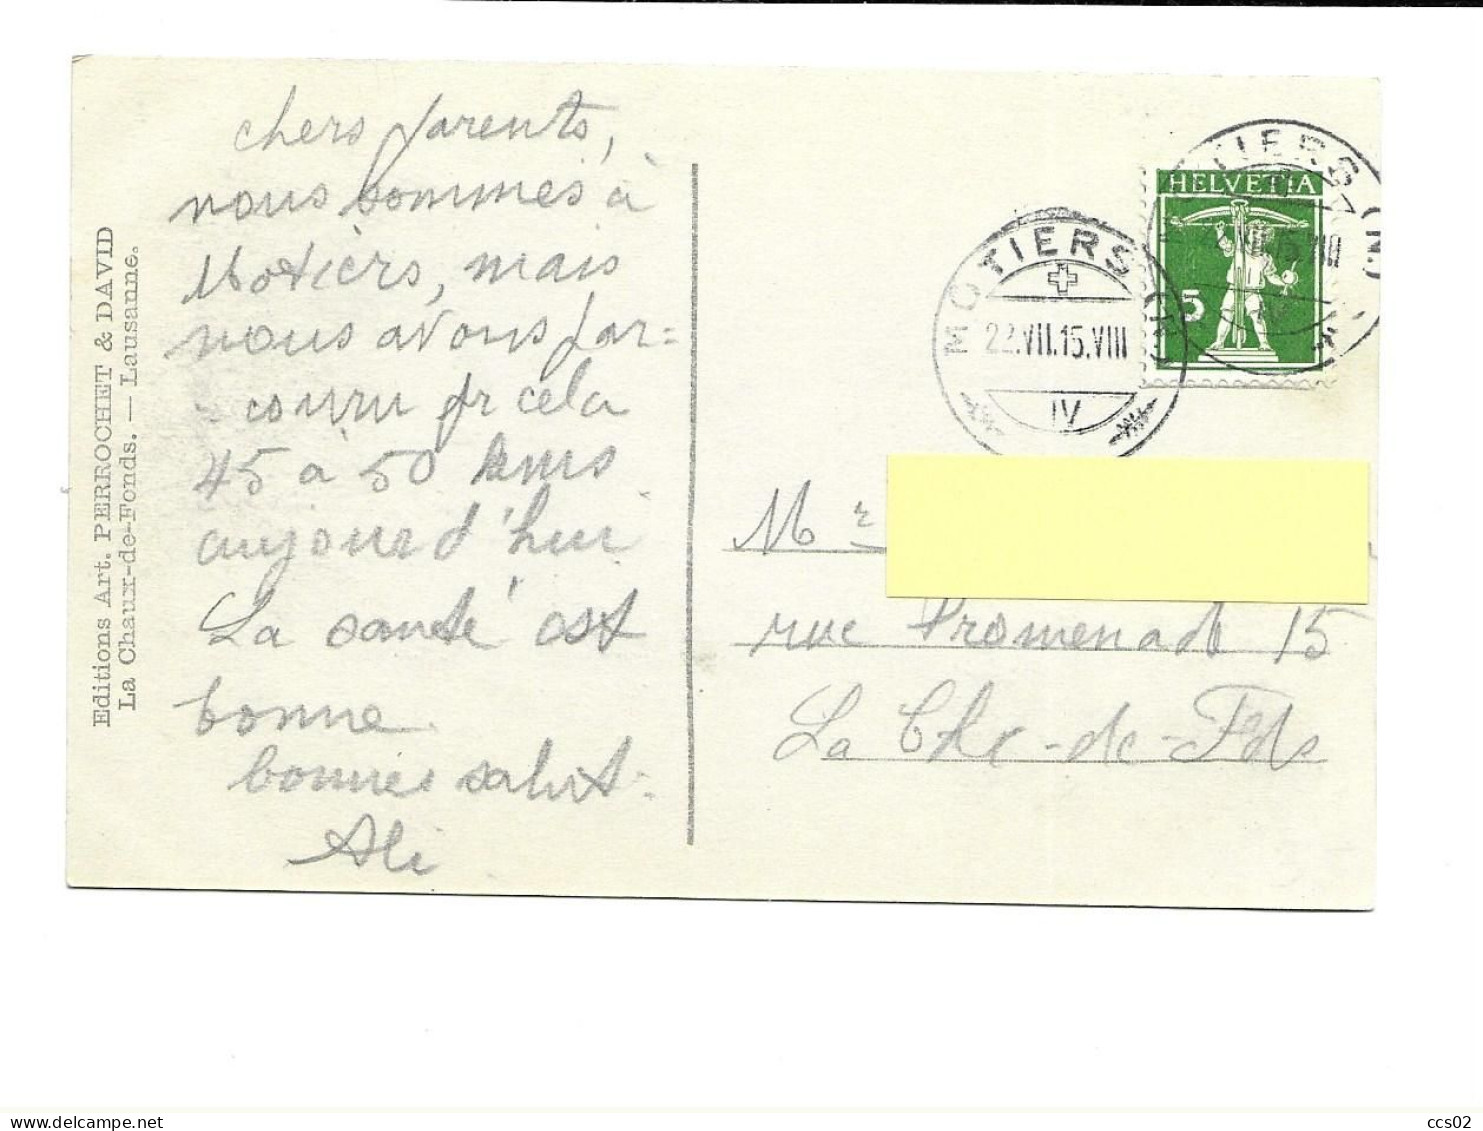 Editions Art. PERROCHET & DAVID
La Chaux-de-Fonds. — Lausanne.
chers parents,
nous sommes à
Motiers, mais
nous avons par=
- couru pr cela
45 à 50 kms
aujourd'hui
La santé est
bonne.
bonnes salut.
Ali
HELVETIA
5
MOTIERS (N.)
22.VII.15.VIII
IV
MOTIERS (N.)
Mr
rue Promenade 15
La Chx-de-Fds
ccs02